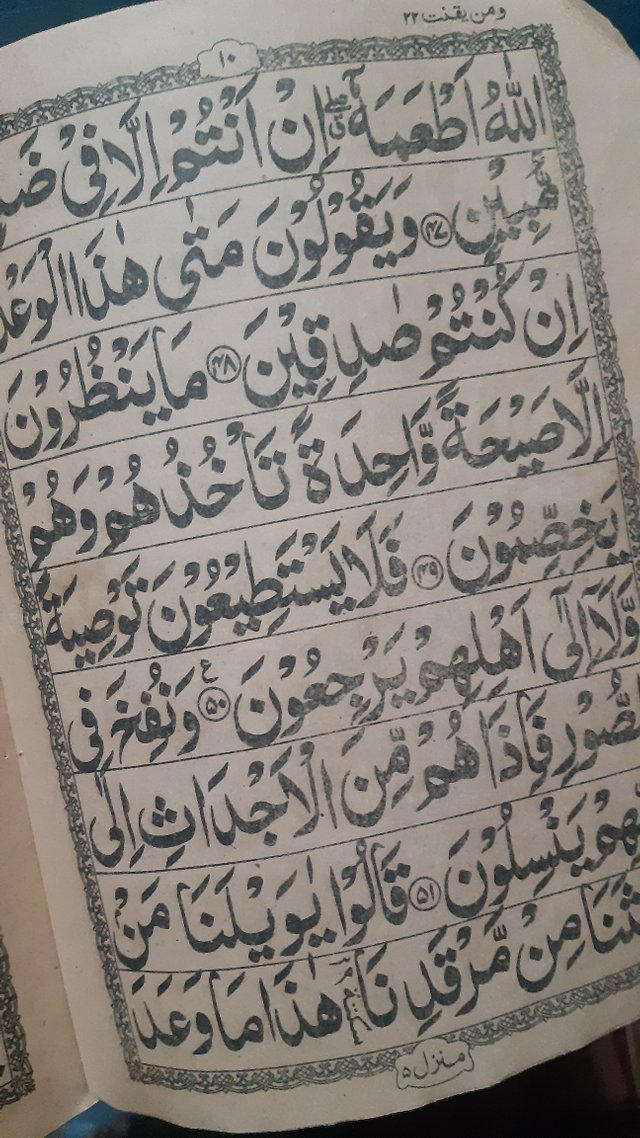 ومن یقنت ۲۲
۱۰
اللّٰهُ اَطْعَمَهٗۤ ۖۗ اِنْ اَنْتُمْ اِلَّا فِیْ
مُّبِیْنٍ ﴿۴۷﴾ وَیَقُوْلُوْنَ مَتٰی هٰذَا الْوَعْدُ
اِنْ كُنْتُمْ صٰدِقِیْنَ ﴿۴۸﴾ مَا یَنْظُرُوْنَ
اِلَّا صَیْحَةً وَّاحِدَةً تَاْخُذُهُمْ وَهُمْ
یَخِصِّمُوْنَ ﴿۴۹﴾ فَلَا یَسْتَطِیْعُوْنَ تَوْصِیَةً
وَّلَاۤ اِلٰۤی اَهْلِهِمْ یَرْجِعُوْنَ ﴿۵۰﴾ ع وَنُفِخَ فِی
الصُّوْرِ فَاِذَا هُمْ مِّنَ الْاَجْدَاثِ اِلٰی
یَنْسِلُوْنَ ﴿۵۱﴾ قَالُوْا یٰوَیْلَنَا مَنْۢ
مِنْ مَّرْقَدِنَا هٰذَا مَا وَعَدَ
منزل ۵